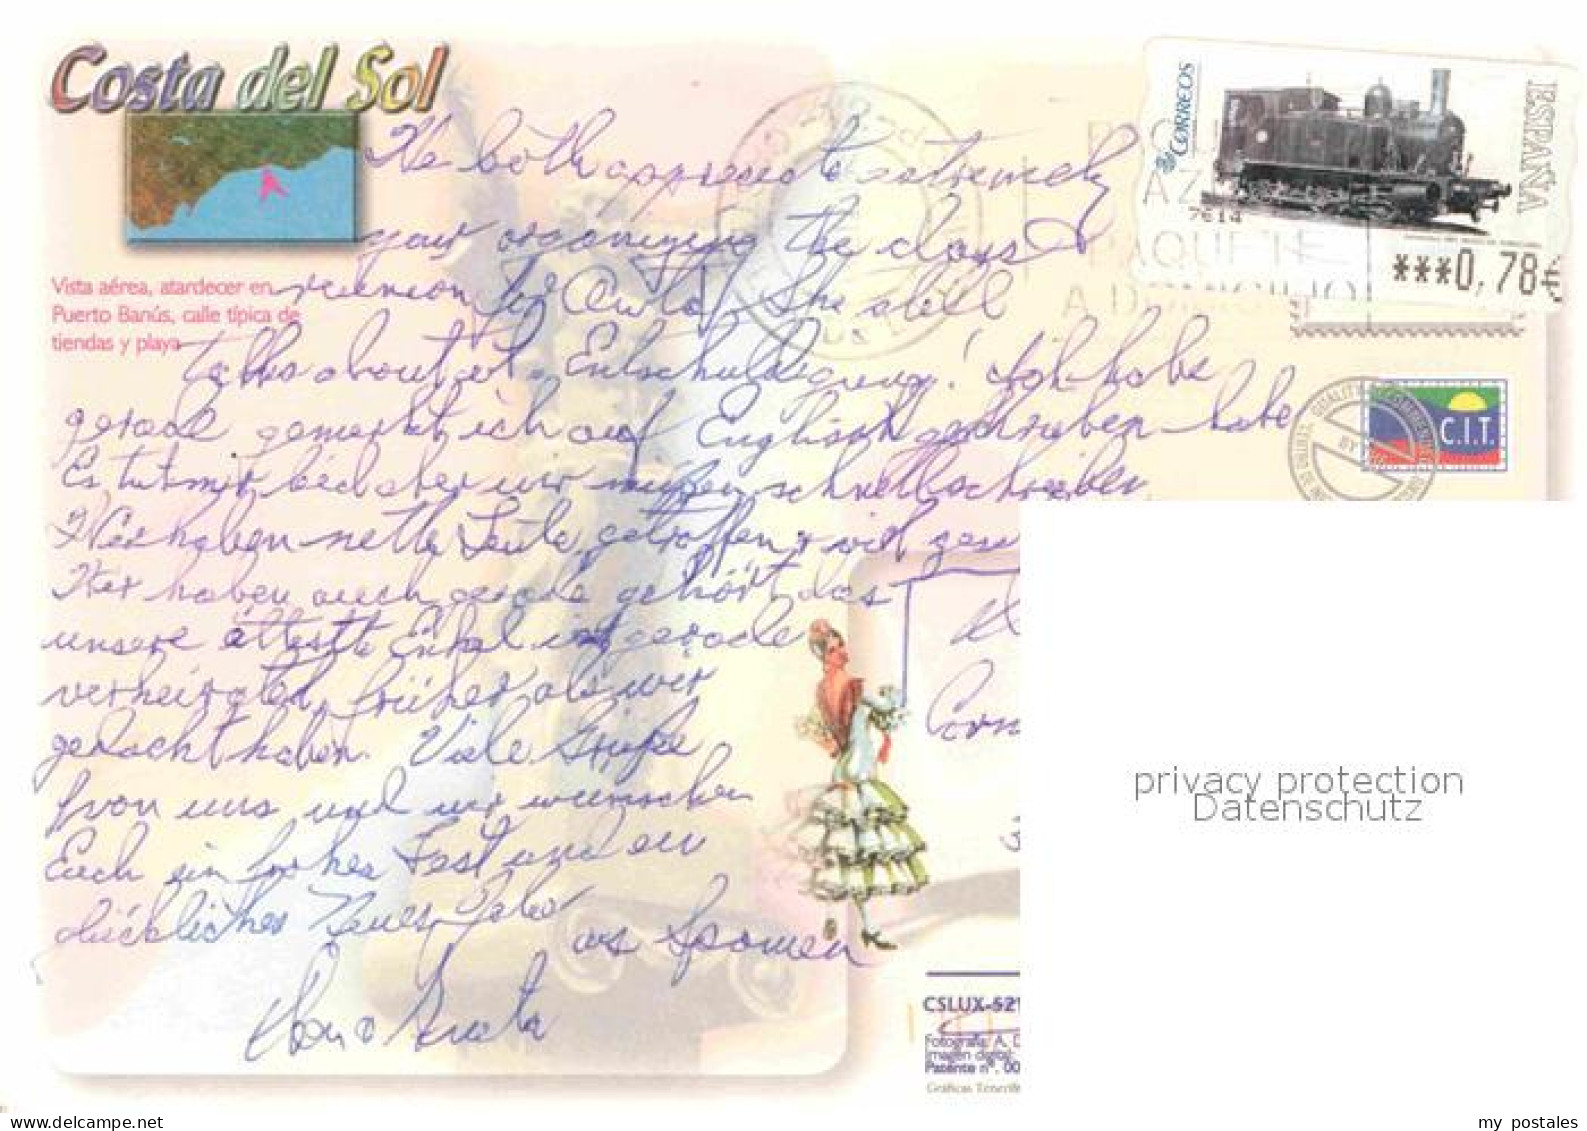 Costa del Sol
We both appreciate extremely
your organizing the class
reunion for Anita. She still
talks about it. Entschuldigung! Ich habe
gerade gemerkt ich auf Englisch geschrieben habe
Es tut mir leid aber wir müßen schnell schreiben
Wir haben nette Leute getroffen + viel
Wir haben auch gerade gehört das
unsere älteste Enkel ist gerade
verheiratet, früher als wir
gedacht haben. Viele Grüße
von uns und wir wunschen
Euch ein frohes Fest und ein
glückliches Neues Jahr
aus Spanien
Anita
Vista aérea, atardecer en
Puerto Banús, calle típica de
tiendas y playa
CORREOS
ESPAÑA
7614
***0,78€
PAQUETE
A DOMICILIO
C.I.T.
QUALITY
BY
privacy protection
Datenschutz
CSLUX-52
Fotografía: A. D
Imagen digital:
Patente nº. 00
Gráficas Tenerife
delcampe.net
my_postales